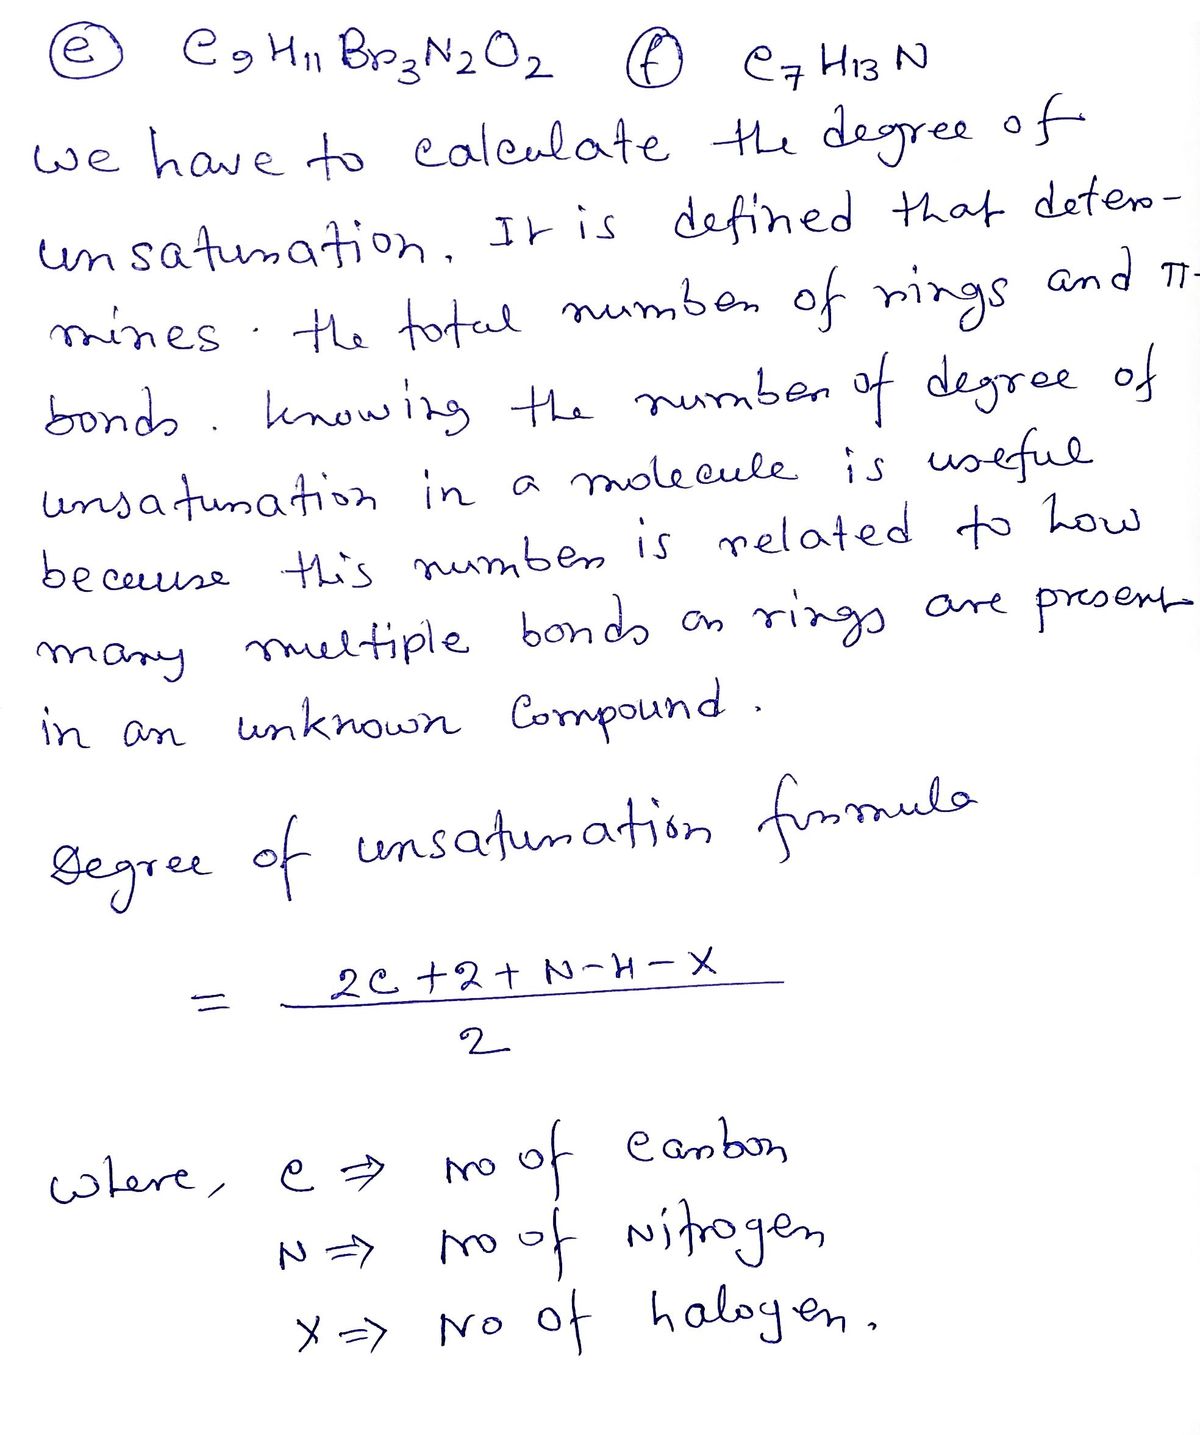 ⓔ C₉H₁₁Br₃N₂O₂ ⓕ C₇H₁₃N
we have to calculate the degree of
unsaturation. It is defined that deter-
mines . the total number of rings and π-
bonds. knowing the number of degree of
unsaturation in a molecule is useful
because this number is related to how
many multiple bonds or rings are present
in an unknown Compound.
Degree of unsaturation formula
= 2C+2+N-H-X
2
where, C ⇒ no of carbon
N ⇒ no of Nitrogen
X ⇒ No of halogen.